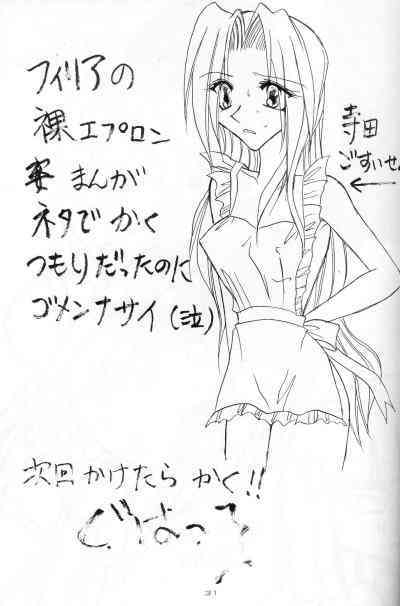 フィリアの
裸エプロン
姿まんが
ネタでかく
つもりだったのに
ゴメンナサイ(泣)
寺田
ごすいせ。
←
次回かけたらかく!!
ぐはっ
31